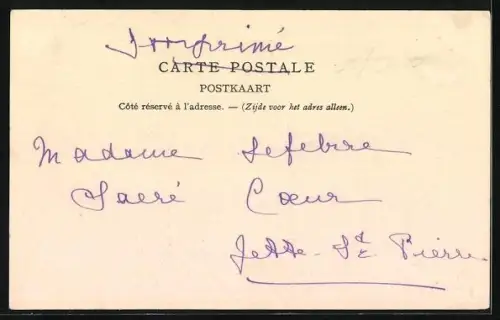 Imprimé
CARTE POSTALE
POSTKAART
Côté réservé à l'adresse. — (Zijde voor het adres alleen.)
Madame Lefebvre
Sacré Cœur
Jette-St Pierre